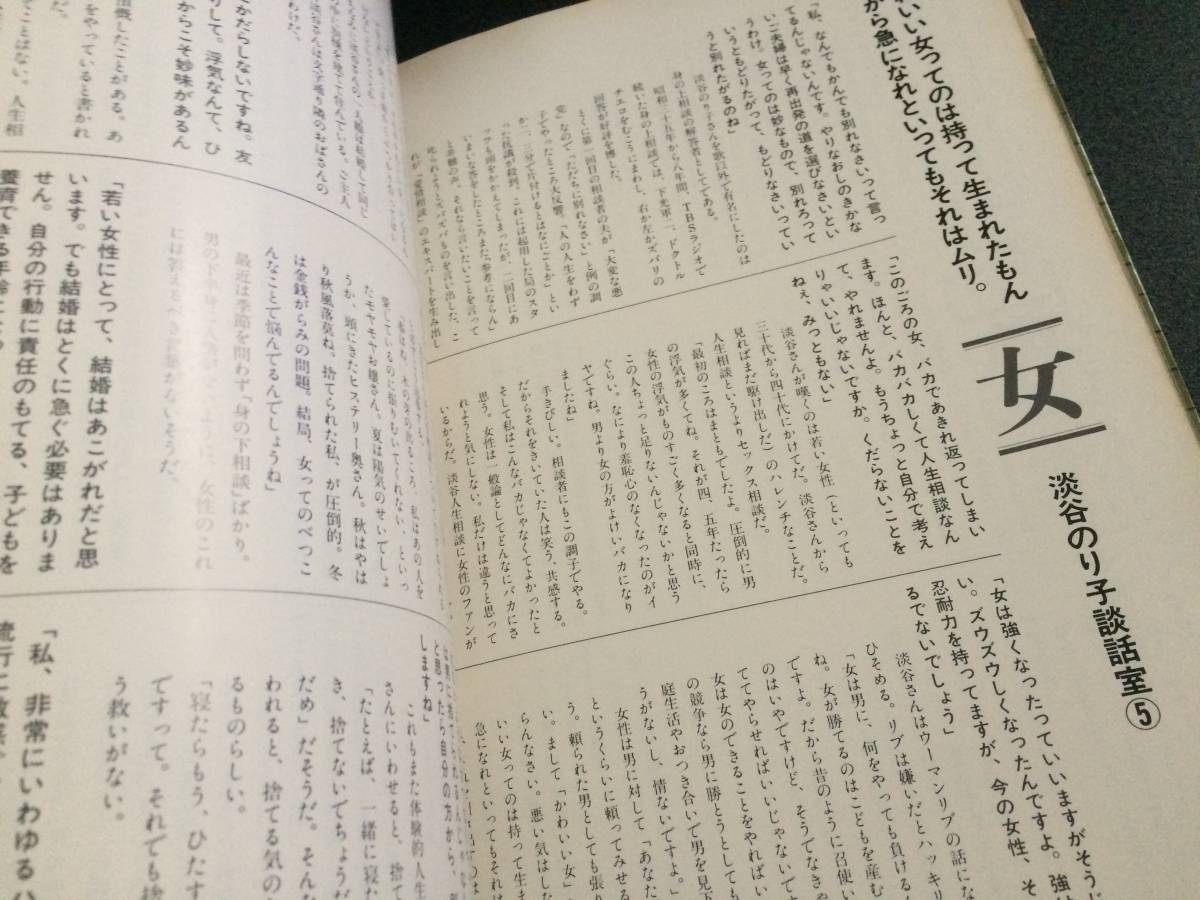 いい女ってのは持って生まれたもん
から急になれといってもそれはムリ。
女
淡谷のり子談話室⑤
「私、なんでもかんでも別れなさいって言っ
てるんじゃないんです。やりなおしのきかな
いご夫婦は早く再出発の道を選びなさいとい
うわけ。女ってのは妙なもので、別れろって
いうともどりたがって、もどりなさいってい
うと別れたがるのね」
淡谷のり子さんを歌以外で有名にしたのは
身の上相談の解答者としてである。
昭和二十五年から八年間、TBSラジオで
続いた身の上相談では、下光軍二、ドクトル
チエコをむこうにまわし、右か左かズバリの
回答が好評を博した。
とくに第一回目の相談者の夫が「大変な悪
党」なので「ただちに別れなさい」と例の調
子でやったところ大反響。「人の人生をわず
か二、三分で片付けるとはなにごとか」とい
った抗議が殺到。これには起用した局のスタ
ッフも頭をかかえてしまったが、二回目にあ
いまいな答をしたところまた「参考にならん」
と非難の声。それなら言いたいことを言って
叱られようとズバズバものを言い出した。こ
れが「愛情相談」のエキスパートを生み出し
「このごろの女、バカであきれ返ってしまい
ます。ほんと、バカバカしくて人生相談なん
て、やれませんよ。もうちょっと自分で考え
りゃいいじゃないですか。くだらないことを
ねぇ、みっともない」
淡谷さんが嘆くのは若い女性(といっても
三十代から四十代にかけてだ。淡谷さんから
見ればまだ駆け出しだ)のハレンチなことだ。
人生相談というよりセックス相談だ。
「最初のころはまともでしたよ。圧倒的に男
の浮気が多くてね。それが四、五年たったら
女性の浮気がものすごく多くなると同時に、
この人ちょっと足りないんじゃないかと思う
ぐらい。なにより羞恥心のなくなったのがイ
ヤですね。男より女の方がよけいバカになり
ましたね」
手きびしい。相談者にもこの調子でやる。
だからそれをきいていた人は笑う、共感する。
そして私はこんなバカじゃなくてよかったと
思う。女性は一般論としてどんなにバカにさ
れようと気にしない。私だけは違うと思って
いるからだ。淡谷人生相談に女性のファンが
「女は強くなったっていいますがそうじ
い。ズウズウしくなったんですよ。強
忍耐力を持ってますが、今の女性、そ
るでないでしょう」
淡谷さんはウーマンリブの話にな
ひそめる。リブは嫌いだとハッキリ
「女は男に、何をやっても負ける
ね。女が勝てるのはこどもを産む
ですよ。だから昔のように召使い
のはいやですけど、そうでなきゃ
ててやらせればいいじゃないで
女は女のできることをやればい
の競争なら男に勝とうとしても
庭生活やおつき合いで男を見下
うがないし、情ないですよ。」
女性は男に対して「あなた
というくらいに頼ってみせる
う。頼られた男としても張り
い。まして「かわいい女」
らんなさい。悪い気はしな
いい女ってのは持って生ま
急になれといってもそれは
さかだらしないですね。友
りして。浮気なんて、ひ
からこそ妙味があるん
慨したことがある。あ
をやっていると書かれ
ことはない。人生相
「若い女性にとって、結婚はあこがれだと思
います。でも結婚はとくに急ぐ必要はありま
せん。自分の行動に責任のもてる、子どもを
養育できる年齢に
愛しているのに振りむいてくれない、といっ
たモヤモヤお嬢さん。夏は陽気のせいでしょ
うか、頭にきたヒステリー奥さん。秋はやは
り秋風落莫ね。捨てられた私、が圧倒的。冬
は金銭がらみの問題。結局、女ってのべつこ
んなことで悩んでるんでしょうね」
最近は季節を問わず「身の下相談」ばかり。
には答えるべき言葉がないそうだ。
と思ったら自分の方から、
しますね」
これもまた体験的人生
さんにいわせると、捨て
「たとえば、一緒に寝た
き、捨てないでちょうだ
だめ」だそうだ。そんな
われると、捨てる気の
るものらしい。
「寝たらもう、ひたす
ですって。それでも捨
う救いがない。
「私、非常にいわゆるハ
流行に敏感